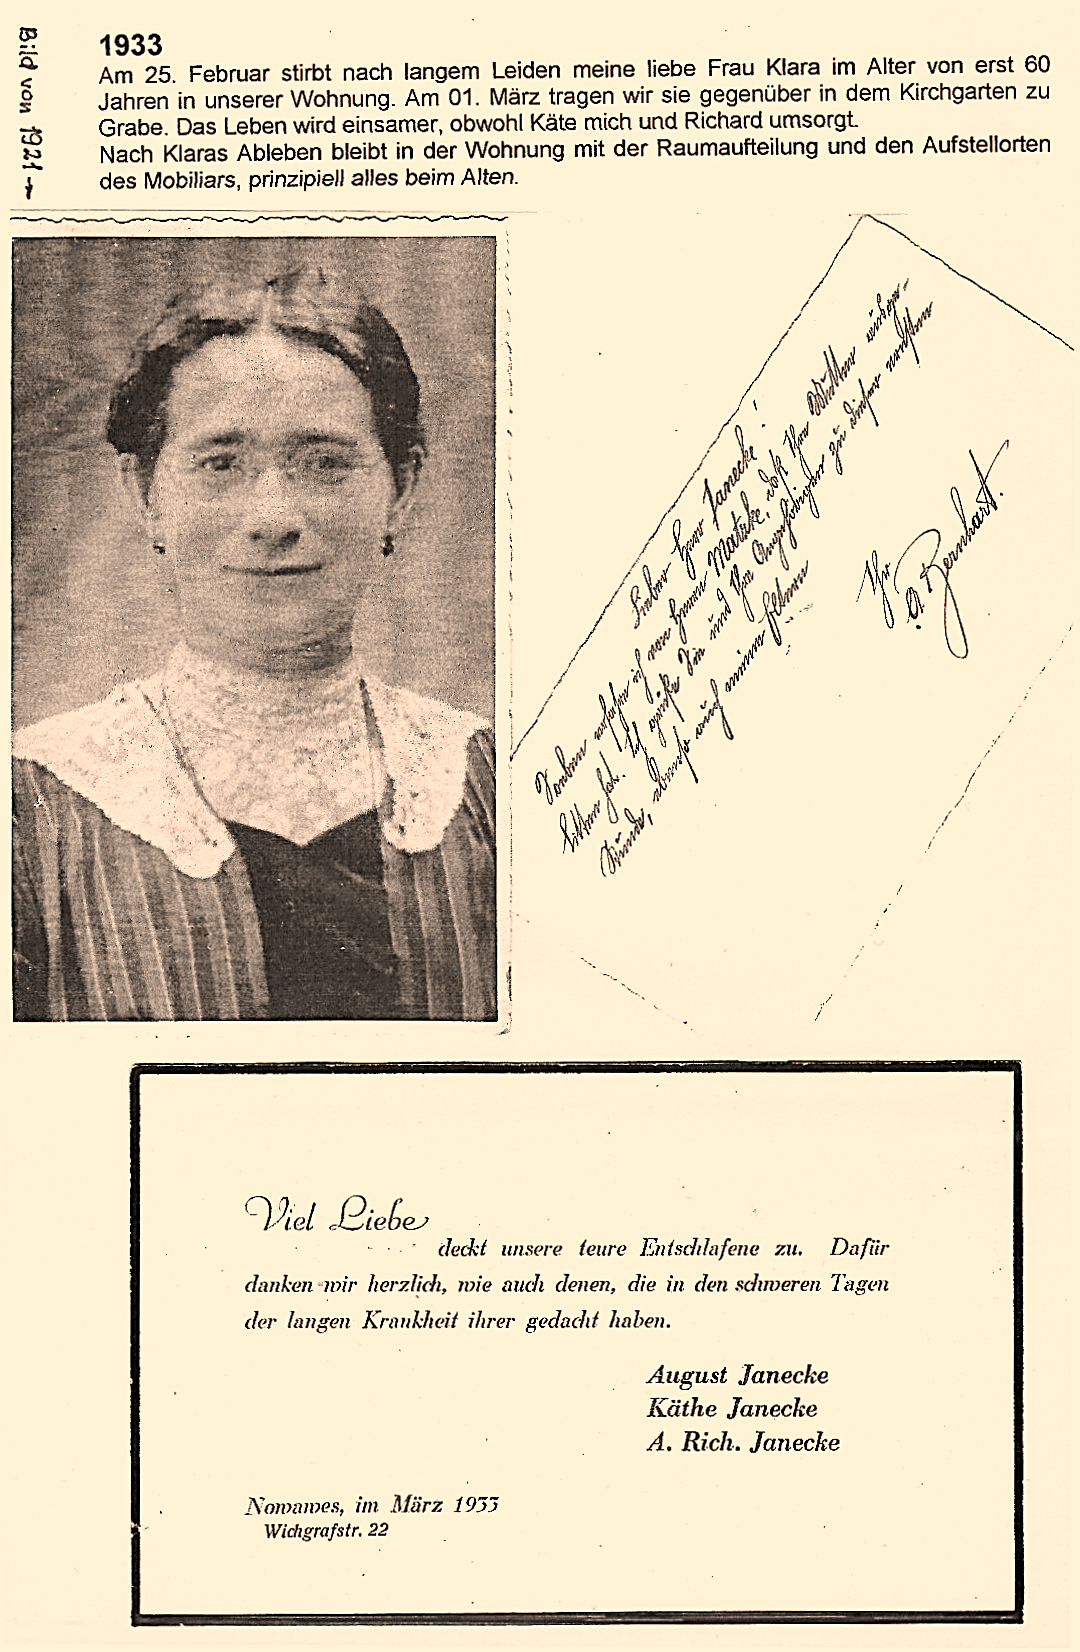 Bild von 1921 →
1933
Am 25. Februar stirbt nach langem Leiden meine liebe Frau Klara im Alter von erst 60
Jahren in unserer Wohnung. Am 01. März tragen wir sie gegenüber in dem Kirchgarten zu
Grabe. Das Leben wird einsamer, obwohl Käte mich und Richard umsorgt.
Nach Klaras Ableben bleibt in der Wohnung mit der Raumaufteilung und den Aufstellorten
des Mobiliars, prinzipiell alles beim Alten.
Lieber Herr Janecke!
Soeben erfahre ich von Herrn Matzke, daß Ihre Mutter
litten hat. Ich grüße Sie und Ihre Angehörigen zu dieser
Stunde, ebenso auch meine
Ihr
A. Bernhart.
Viel Liebe
deckt unsere teure Entschlafene zu. Dafür
danken wir herzlich, wie auch denen, die in den schweren Tagen
der langen Krankheit ihrer gedacht haben.
August Janecke
Käthe Janecke
A. Rich. Janecke
Nowawes, im März 1933
Wichgrafstr. 22